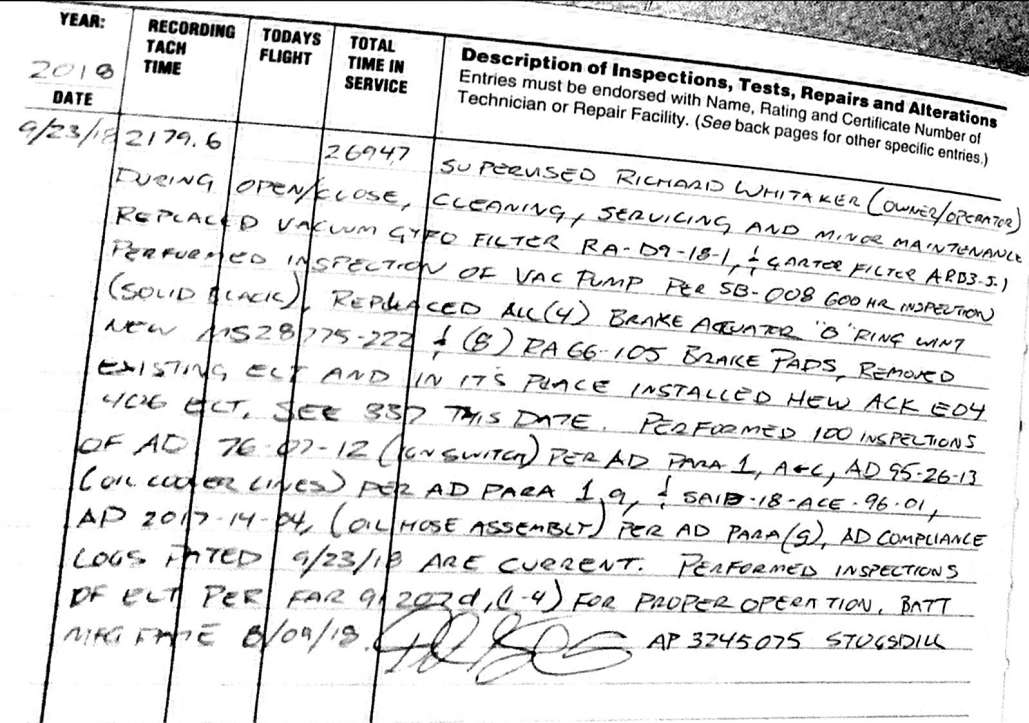 YEAR: 2018
DATE
RECORDING TACH TIME
TODAYS FLIGHT
TOTAL TIME IN SERVICE
Description of Inspections, Tests, Repairs and Alterations
Entries must be endorsed with Name, Rating and Certificate Number of
Technician or Repair Facility. (See back pages for other specific entries.)
9/23/18 2179.6 26947 SUPERVISED RICHARD WHITAKER (OWNER/OPERATOR)
DURING OPEN/CLOSE, CLEANING, SERVICING AND MINOR MAINTENANCE
REPLACED VACUUM GYRO FILTER RA-D9-18-1, & GARTER FILTER ARD3-5.1
PERFORMED INSPECTION OF VAC PUMP PER SB-008 600 HR INSPECTION
(SOLID BLACK), REPLACED ALL (4) BRAKE ACTUATOR "O" RING WINT
NEW MS28775-222 & (8) RA66-105 BRAKE PADS, REMOVED
EXISTING ELT AND IN IT'S PLACE INSTALLED NEW ACK E04
406 ELT, SEE 337 THIS DATE. PERFORMED 100 INSPECTIONS
OF AD 76-07-12 (IGN SWITCH) PER AD PARA 1, A&C, AD 95-26-13
(OIL COOLER LINES) PER AD PARA 1,9, & SAIB-18-ACE-96-01,
AD 2017-14-04, (OIL HOSE ASSEMBLY) PER AD PARA (g), AD COMPLIANCE
LOGS DATED 9/23/18 ARE CURRENT. PERFORMED INSPECTIONS
OF ELT PER FAR 91 207d, (1-4) FOR PROPER OPERATION. BATT
MFG DATE 8/09/18. AP 3245075 STUGSDILL